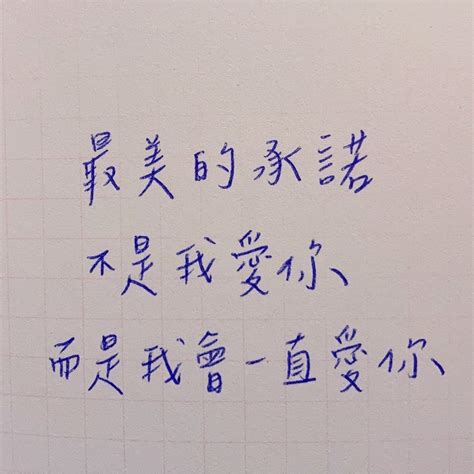 最美的承諾
不是我愛你
而是我會一直愛你